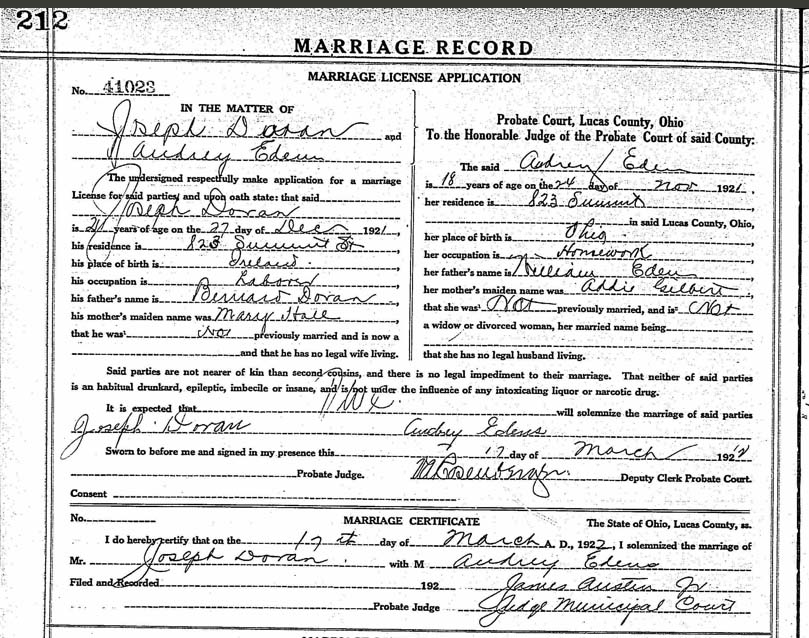 212
MARRIAGE RECORD
MARRIAGE LICENSE APPLICATION
No. 41023
IN THE MATTER OF
Joseph Doran and
Audrey Edens
The undersigned respectfully make application for a marriage
License for said parties and upon oath state: that said
Joseph Doran
is 21 years of age on the 27 day of Dec 1921,
his residence is 823 Summit St
his place of birth is Ireland,
his occupation is Labor,
his father's name is Bernard Doran,
his mother's maiden name was Mary,
that he was Not previously married and is now a
and that he has no legal wife living.
Probate Court, Lucas County, Ohio
To the Honorable Judge of the Probate Court of said County:
The said Audrey Eden
is 18 years of age on the 24 day of Nov 1921,
her residence is 823 Summit
in said Lucas County, Ohio,
her place of birth is Ohio,
her occupation is Homework,
her father's name is William Eden,
her mother's maiden name was Addie Gilbert,
that she was Not previously married, and is Not
a widow or divorced woman, her married name being
that she has no legal husband living.
Said parties are not nearer of kin than second cousins, and there is no legal impediment to their marriage. That neither of said parties
is an habitual drunkard, epileptic, imbecile or insane, and is not under the influence of any intoxicating liquor or narcotic drug.
It is expected that will solemnize the marriage of said parties
Joseph Doran Audrey Edens
Sworn to before me and signed in my presence this 17 day of March 192
Probate Judge. Deputy Clerk Probate Court.
Consent
No. MARRIAGE CERTIFICATE The State of Ohio, Lucas County, ss.
I do hereby certify that on the 17th day of March A. D., 1922, I solemnized the marriage of
Mr. Joseph Doran with M Audrey Edens
Filed and Recorded 192 James Austin Jr
Probate Judge Judge Municipal Court